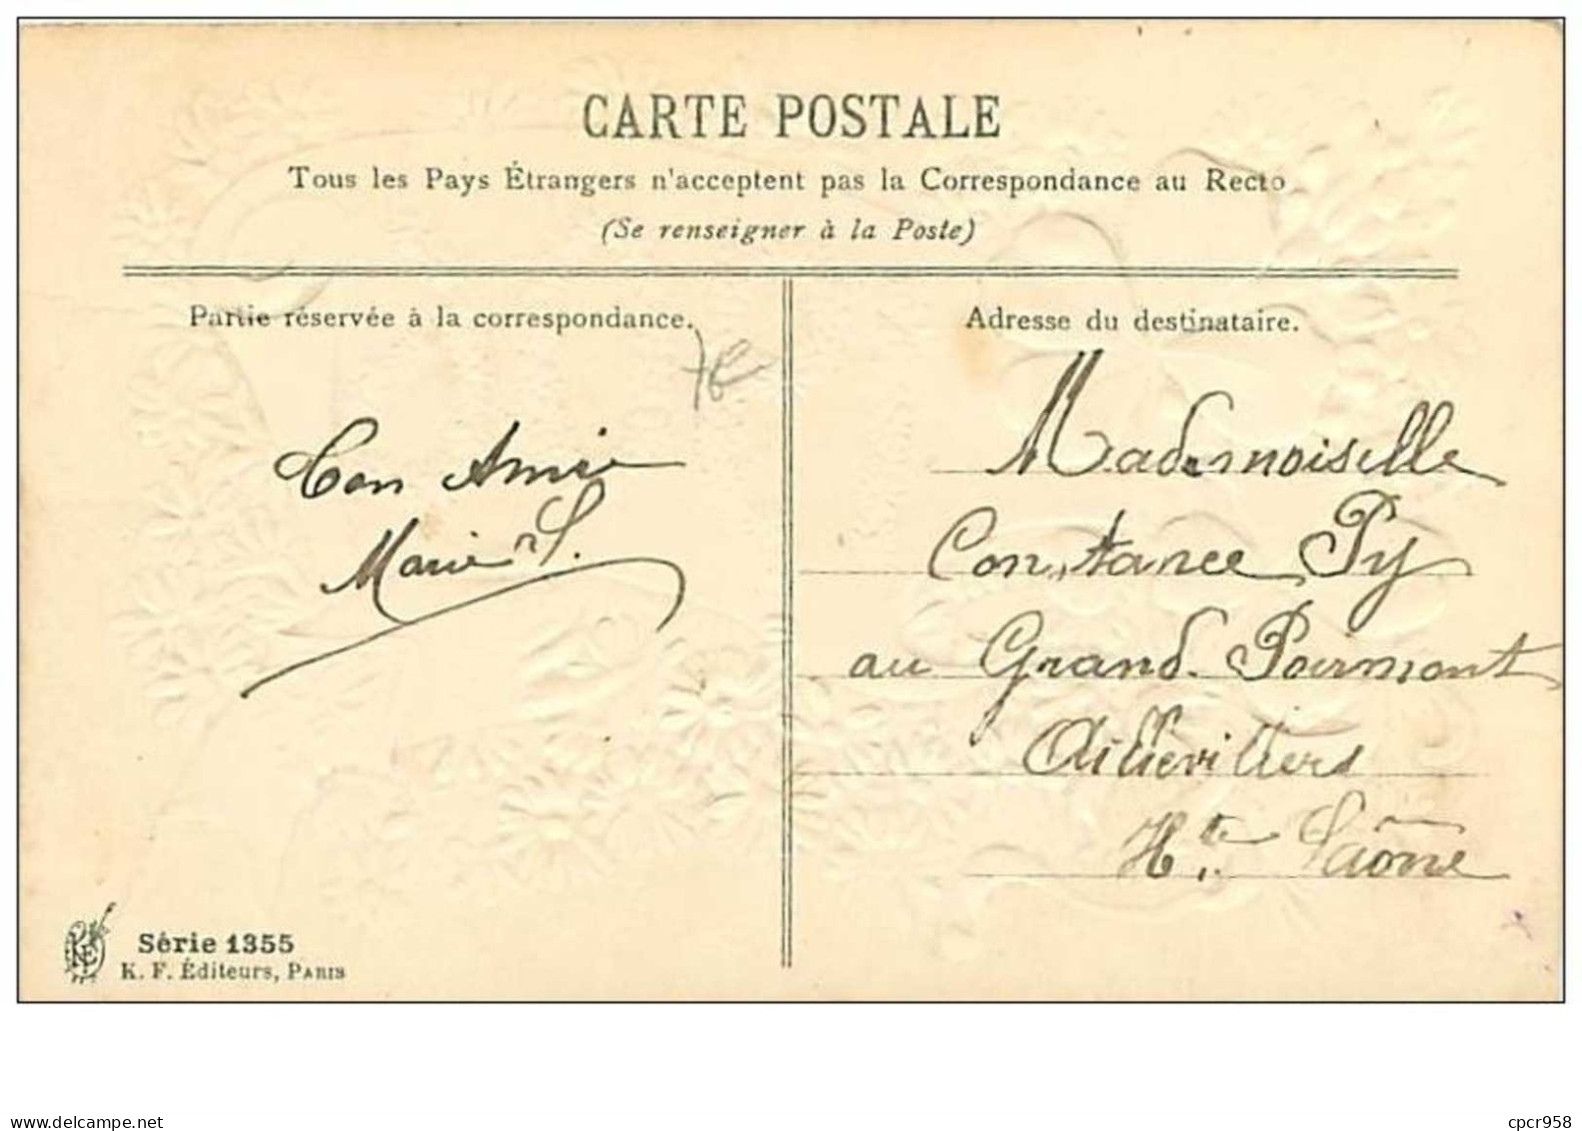 CARTE POSTALE
Tous les Pays Étrangers n'acceptent pas la Correspondance au Recto
(Se renseigner à la Poste)
Partie réservée à la correspondance.
7€
Ton Amie
Marie S.
Adresse du destinataire.
Mademoiselle
Constance Py
au Grand Poirmont
Aillevillers
Hte Saône
Série 1355
K. F. Éditeurs, PARIS
www.delcampe.net
cpcr958